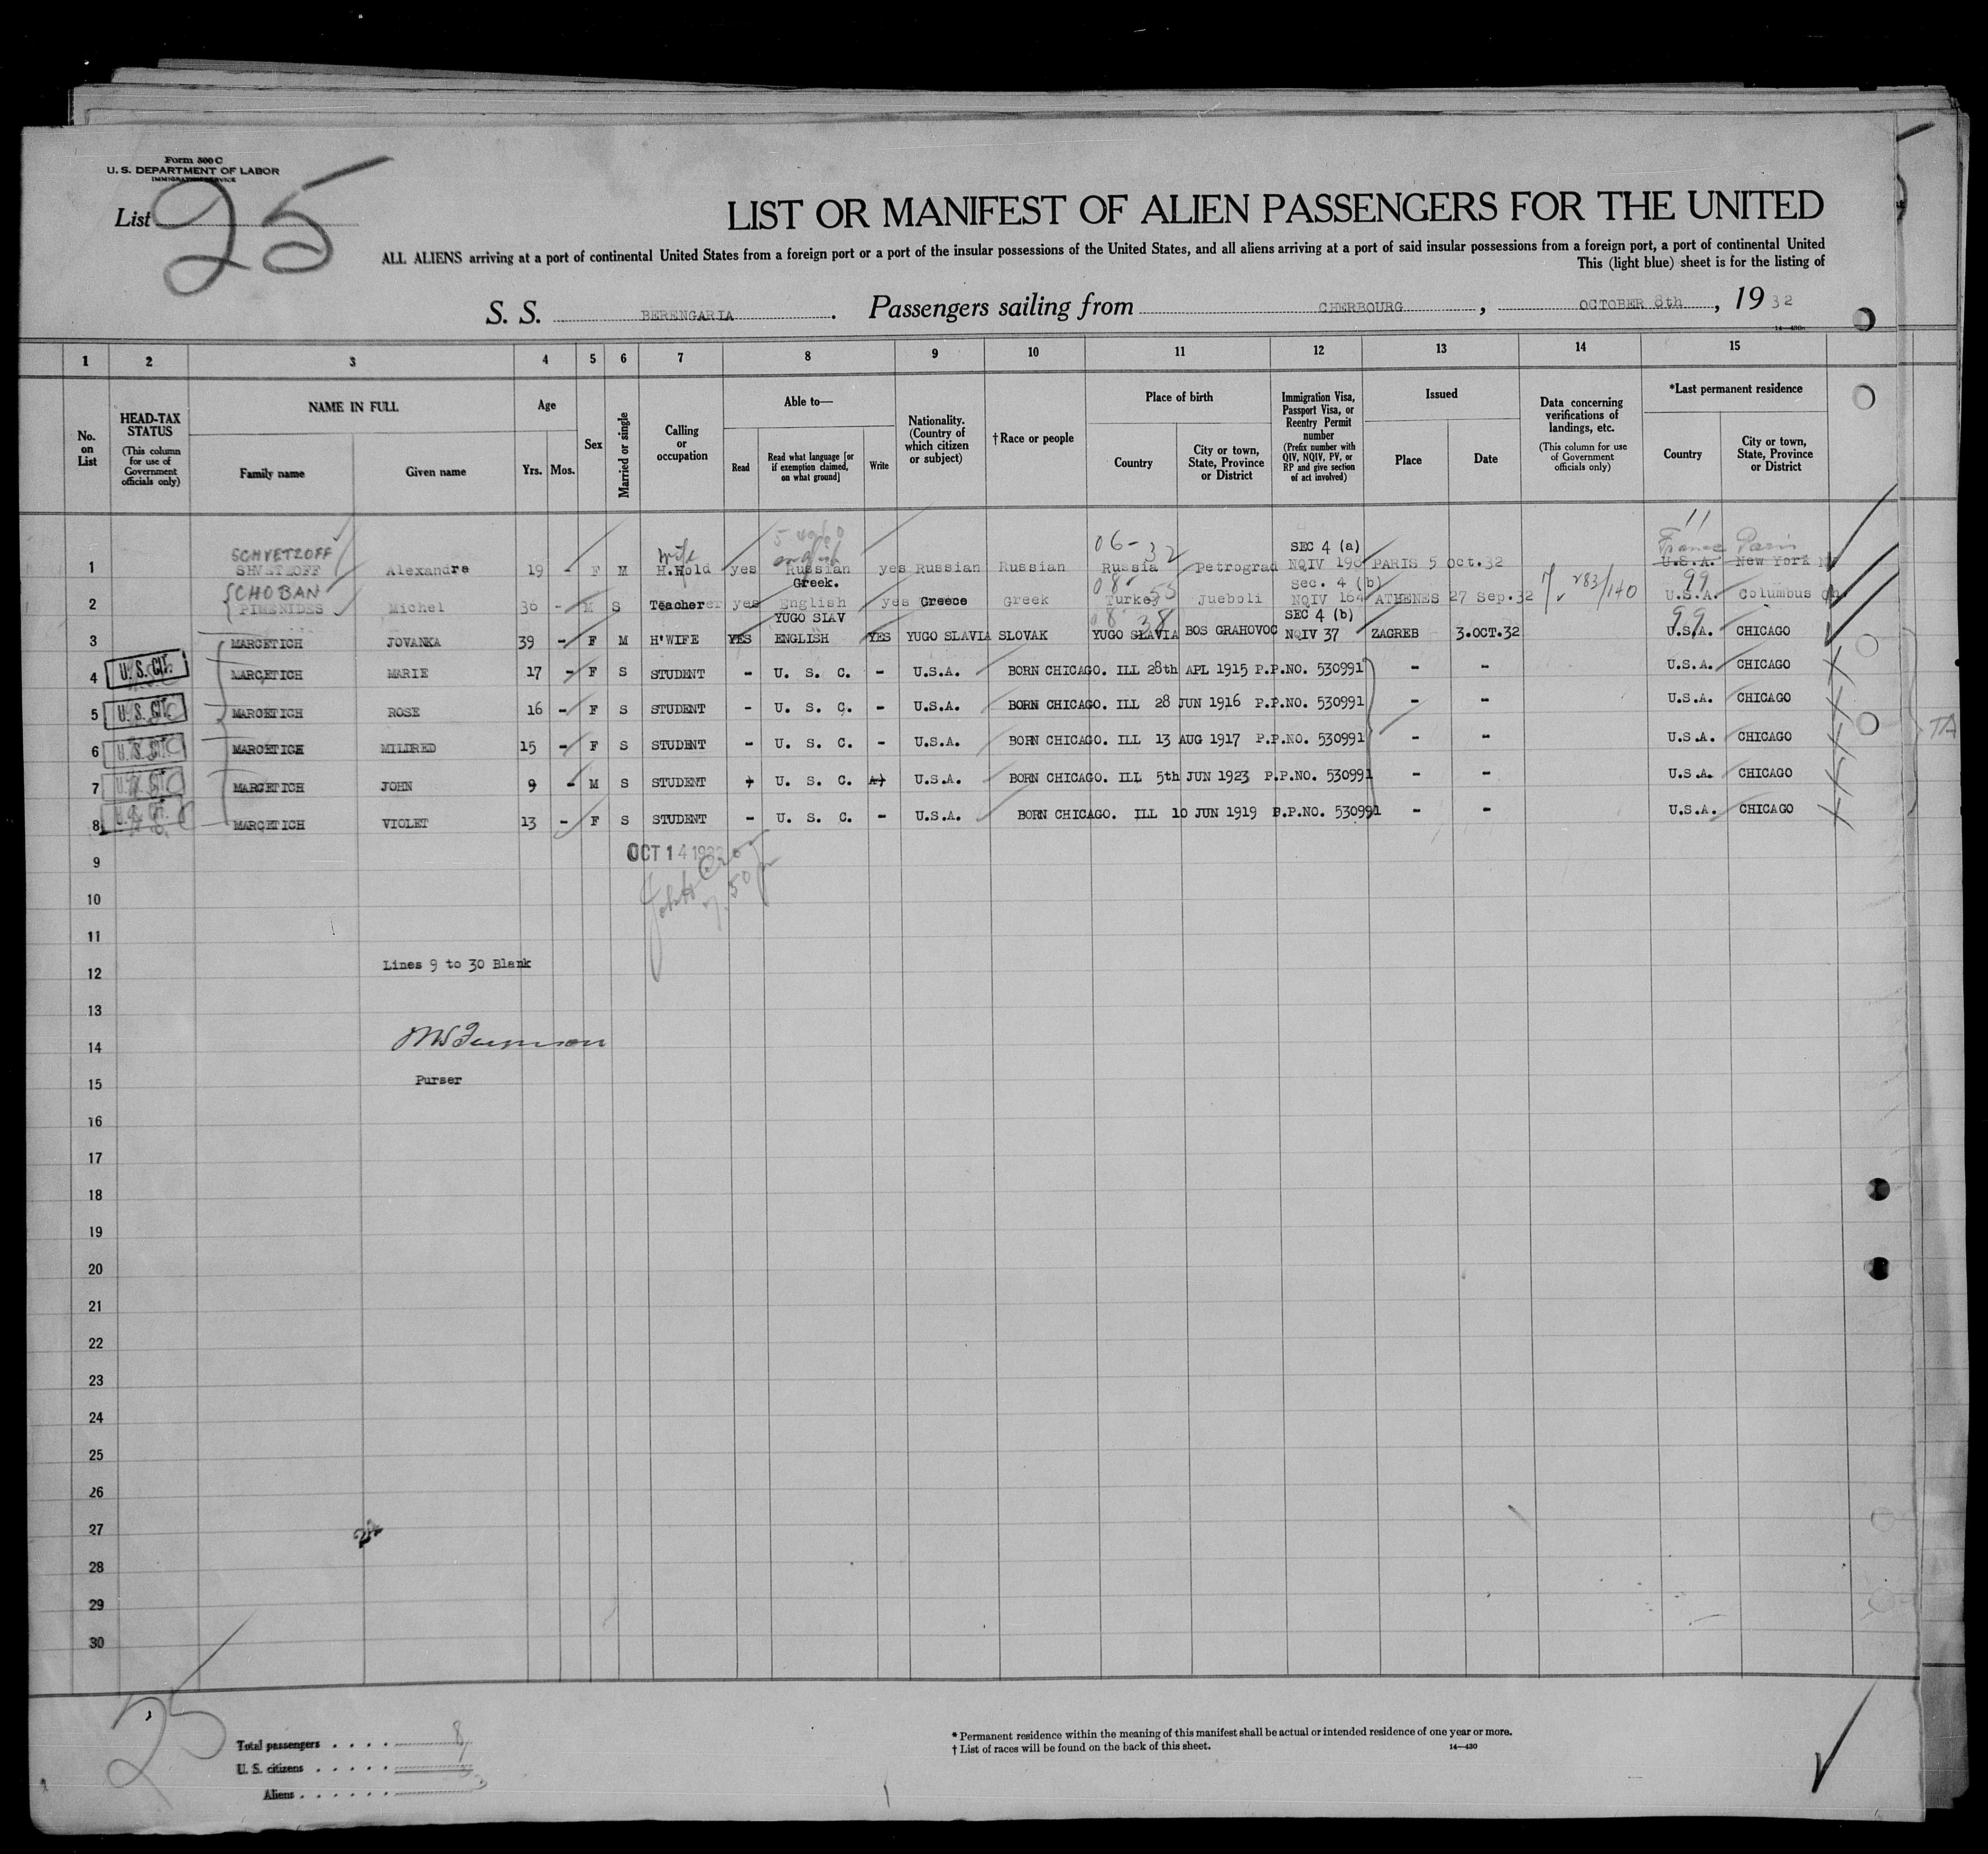 Form 500 C
U. S. DEPARTMENT OF LABOR
IMMIGRATION SERVICE
List 25
LIST OR MANIFEST OF ALIEN PASSENGERS FOR THE UNITED
ALL ALIENS arriving at a port of continental United States from a foreign port or a port of the insular possessions of the United States, and all aliens arriving at a port of said insular possessions from a foreign port, a port of continental United
This (light blue) sheet is for the listing of
S. S. BERENGARIA. Passengers sailing from CHERBOURG, OCTOBER 8th, 1932
14—430
1 2 3 4 5 6 7 8 9 10 11 12 13 14 15
No. on List
HEAD-TAX STATUS
(This column for use of Government officials only)
NAME IN FULL
Family name
Given name
Age
Yrs. Mos.
Sex
Married or single
Calling or occupation
Able to—
Read
Read what language [or if exemption claimed, on what ground]
Write
Nationality. (Country of which citizen or subject)
† Race or people
Place of birth
Country
City or town, State, Province or District
Immigration Visa, Passport Visa, or Reentry Permit number
(Prefix number with QIV, NQIV, PV, or RP and give section of act involved)
Issued
Place
Date
Data concerning verifications of landings, etc.
(This column for use of Government officials only)
*Last permanent residence
Country
City or town, State, Province or District
11
SCHVETZOFF wife english 06-32 SEC 4 (a) France Paris
1 SHVETZOFF Alexandra 19 - F M H.Hold yes Russian yes Russian Russian Russia Petrograd NQIV 198 PARIS 5 Oct.32 U.S.A. New York
SCHOBAN Greek. 08-55 Sec. 4 (b) 283/140 99
2 PIMENIDES Michel 30 - M S Teacher yes English yes Greece Greek Turkey Jueboli NQIV 164 ATHENES 27 Sep.32 U.S.A. Columbus
YUGO SLAV 08-38 SEC 4 (b) 99
3 MARCETICH JOVANKA 39 - F M H'WIFE YES ENGLISH YES YUGO SLAVIA SLOVAK YUGO SLAVIA BOS GRAHOVOC NQIV 37 ZAGREB 3.OCT.32 U.S.A. CHICAGO
4 U. S. CIT. MARCETICH MARIE 17 - F S STUDENT - U. S. C. - U.S.A. BORN CHICAGO. ILL 28th APL 1915 P.P.NO. 530991 - - U.S.A. CHICAGO
5 U. S. CIT. MARCETICH ROSE 16 - F S STUDENT - U. S. C. - U.S.A. BORN CHICAGO. ILL 28 JUN 1916 P.P.NO. 530991 - - U.S.A. CHICAGO
6 U. S. CIT. MARCETICH MILDRED 15 - F S STUDENT - U. S. C. - U.S.A. BORN CHICAGO. ILL 13 AUG 1917 P.P.NO. 530991 - - U.S.A. CHICAGO
7 U. S. CIT. MARCETICH JOHN 9 - M S STUDENT U. S. C. U.S.A. BORN CHICAGO. ILL 5th JUN 1923 P.P.NO. 530991 - - U.S.A. CHICAGO
8 U. S. CIT. MARCETICH VIOLET 13 - F S STUDENT - U. S. C. - U.S.A. BORN CHICAGO. ILL 10 JUN 1919 P.P.NO. 530991 - - U.S.A. CHICAGO
TA
9 OCT 14 1932
10
11
Lines 9 to 30 Blank
12
13
14
15 Purser
16
17
18
19
20
21
22
23
24
25
26
27
28
29
30
25
Total passengers . . . . 8
U. S. citizens . . . . .
Aliens . . . . . . 3
* Permanent residence within the meaning of this manifest shall be actual or intended residence of one year or more.
† List of races will be found on the back of this sheet.
14—430